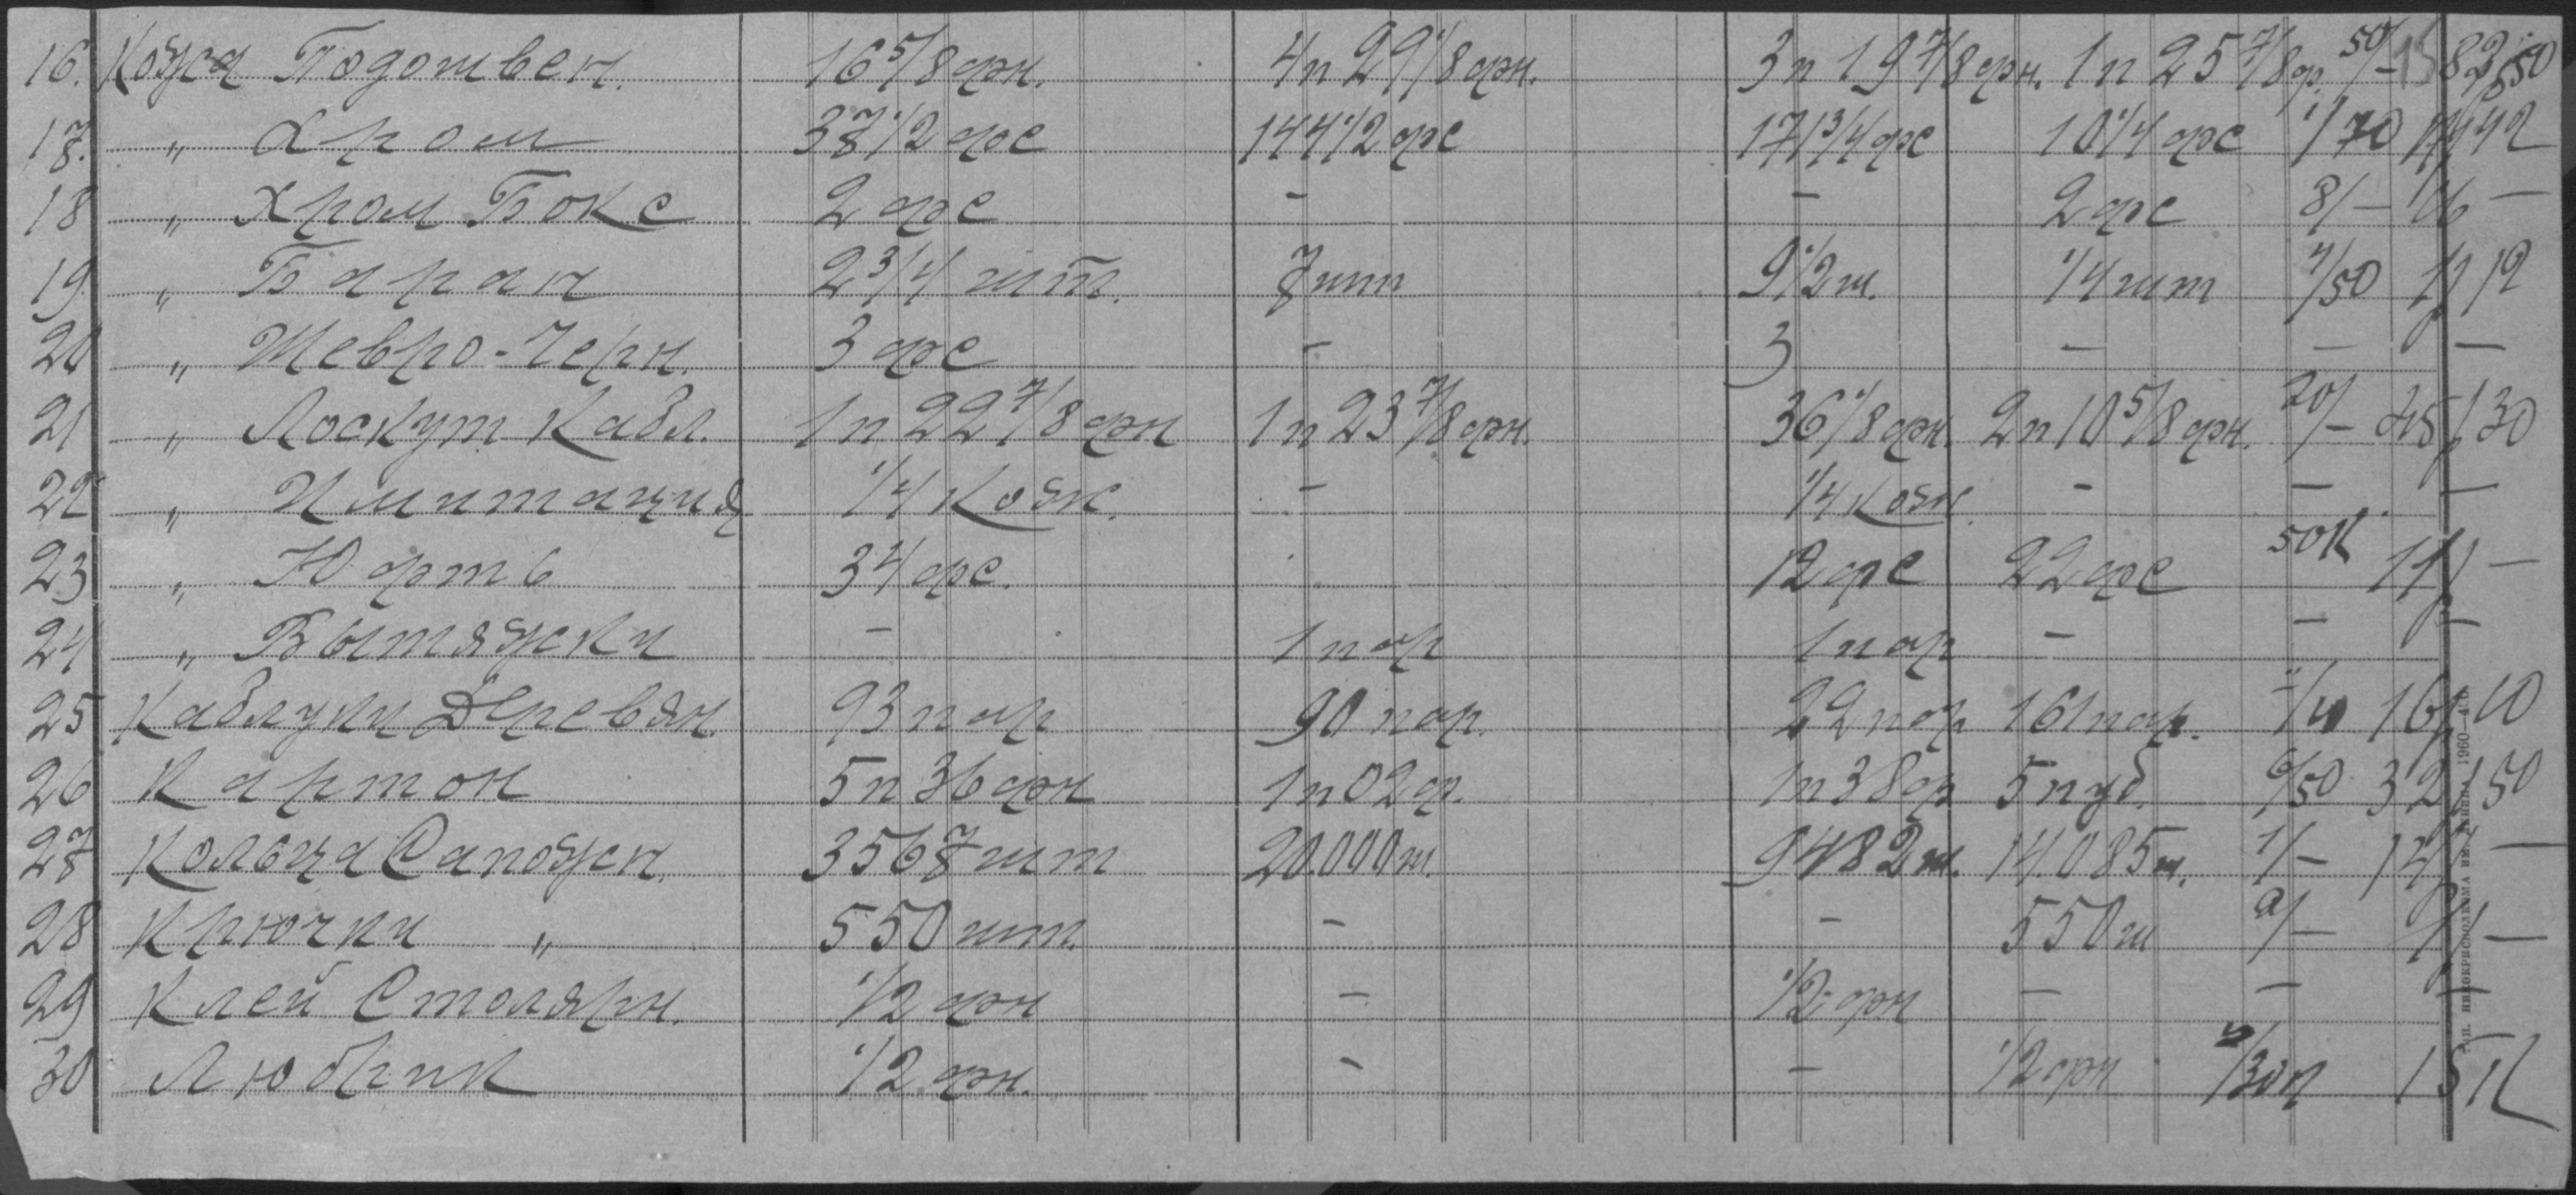 16. Кожа Подошвен. 16 5/8 фн. 4п 29 1/8 фн. 3п 19 7/8 фн. 1п 25 7/8 ф. 50/– 82р50
17. " Хром 37 1/2 фс 144 1/2 фс 171 3/4 фс 10 1/4 фс 1/70 17р42
18 " Хром Бокс 2 фс – – 2 фс 8/– 16 –
19 " Баран 2 3/4 шт. 7 шт 9 1/2 ш. 1/4 шт 4/50 1р12
20 " Шевро-Черн. 3 фс – 3 – – –
21 " Лоскут Кабл. 1п 22 7/8 фн 1п 23 7/8 фн. 36 1/8 фн. 2п 10 5/8 фн. 20/– 45р30
22 " Имитация 1/4 кож. – 1/4 кож. – – –
23 " Юфть 34 фс. 12 фс 22 фс 50к 11р –
24 " Вытяжки – 1 пар 1 пар – – –
25 Каблуки Деревян. 93 пар 90 пар. 22 пар 161 пар. –/10 16р10
26 Картон 5п 36 фн 1п 02 ф. 1п 38 ф 5 пуд. 6/50 32р50
27 Кольца Сапожн. 3567 шт 20.000 ш. 9482 ш. 14.085 ш. 1/– 14р –
28 Крючки " 550 шт. – – 550 ш 2/– 1р –
29 Клей Столярн. 1/2 фн – 1/2 фн – – –
30 Любрик 1/2 фн. – – 1/2 фн –/30к 15к